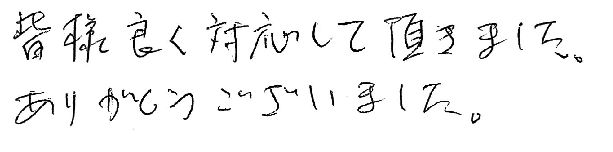 皆様良く対応して頂きました。
ありがとうございました。